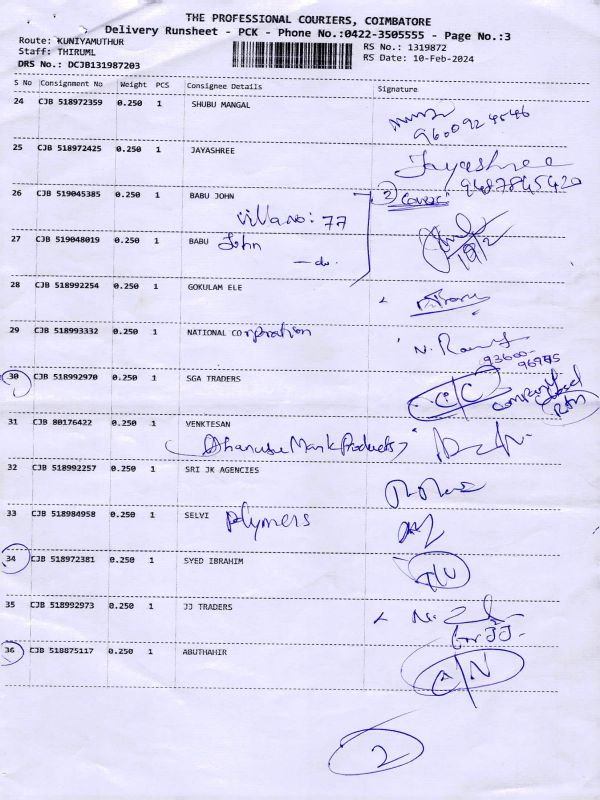 THE PROFESSIONAL COURIERS, COIMBATORE
Delivery Runsheet - PCK - Phone No.:0422-3505555 - Page No.:3
Route: KUNIYAMUTHUR
RS No.: 1319872
Staff: THIRUML
RS Date: 10-Feb-2024
DRS No.: DCJB131987203
S No Consignment No Weight PCS Consignee Details Signature
24 CJB 518972359 0.250 1 SHUBU MANGAL
25 CJB 518972425 0.250 1 JAYASHREE Jayashree
9487845420
26 CJB 519045385 0.250 1 BABU JOHN 2 Cover
Villa no: 77
27 CJB 519048019 0.250 1 BABU John
- do.
28 CJB 518992254 0.250 1 GOKULAM ELE
29 CJB 518993332 0.250 1 NATIONAL COrporation
93600-
30 CJB 518992970 0.250 1 SGA TRADERS C/C company closed
RTN
31 CJB 80176422 0.250 1 VENKTESAN
(Dhanusu Mark Products)
32 CJB 518992257 0.250 1 SRI JK AGENCIES
33 CJB 518984958 0.250 1 SELVI Polymers
34 CJB 518972381 0.250 1 SYED IBRAHIM
35 CJB 518992973 0.250 1 JJ TRADERS
for JJ.
36 CJB 518875117 0.250 1 ABUTHAHIR A/N
2